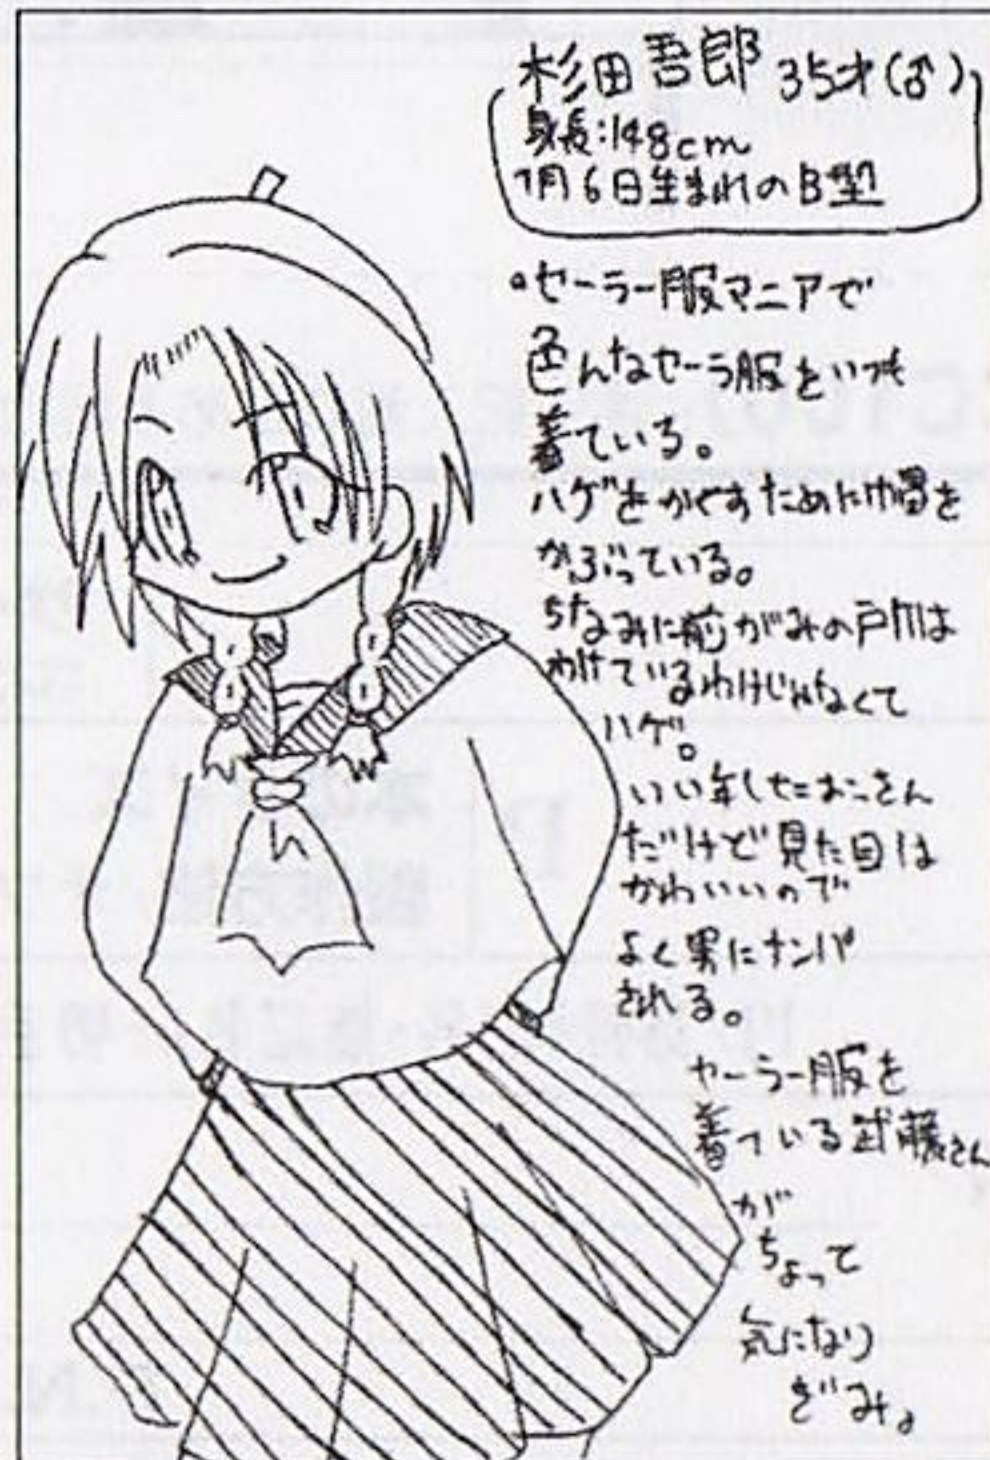 杉田吾郎 35才(♂)
身長:148cm
7月6日生まれのB型
・セーラー服マニアで
色んなセーラ服をいつも
着ている。
ハゲをかくすために帽を
かぶっている。
ちなみに前がみの所は
わけているわけじゃなくて
ハゲ。
いい年したおっさん
だけど見た目は
かわいいので
よく男にナンパ
される。
セーラー服を
着ている武藤さん
が
ちょって
気になり
ぎみ。